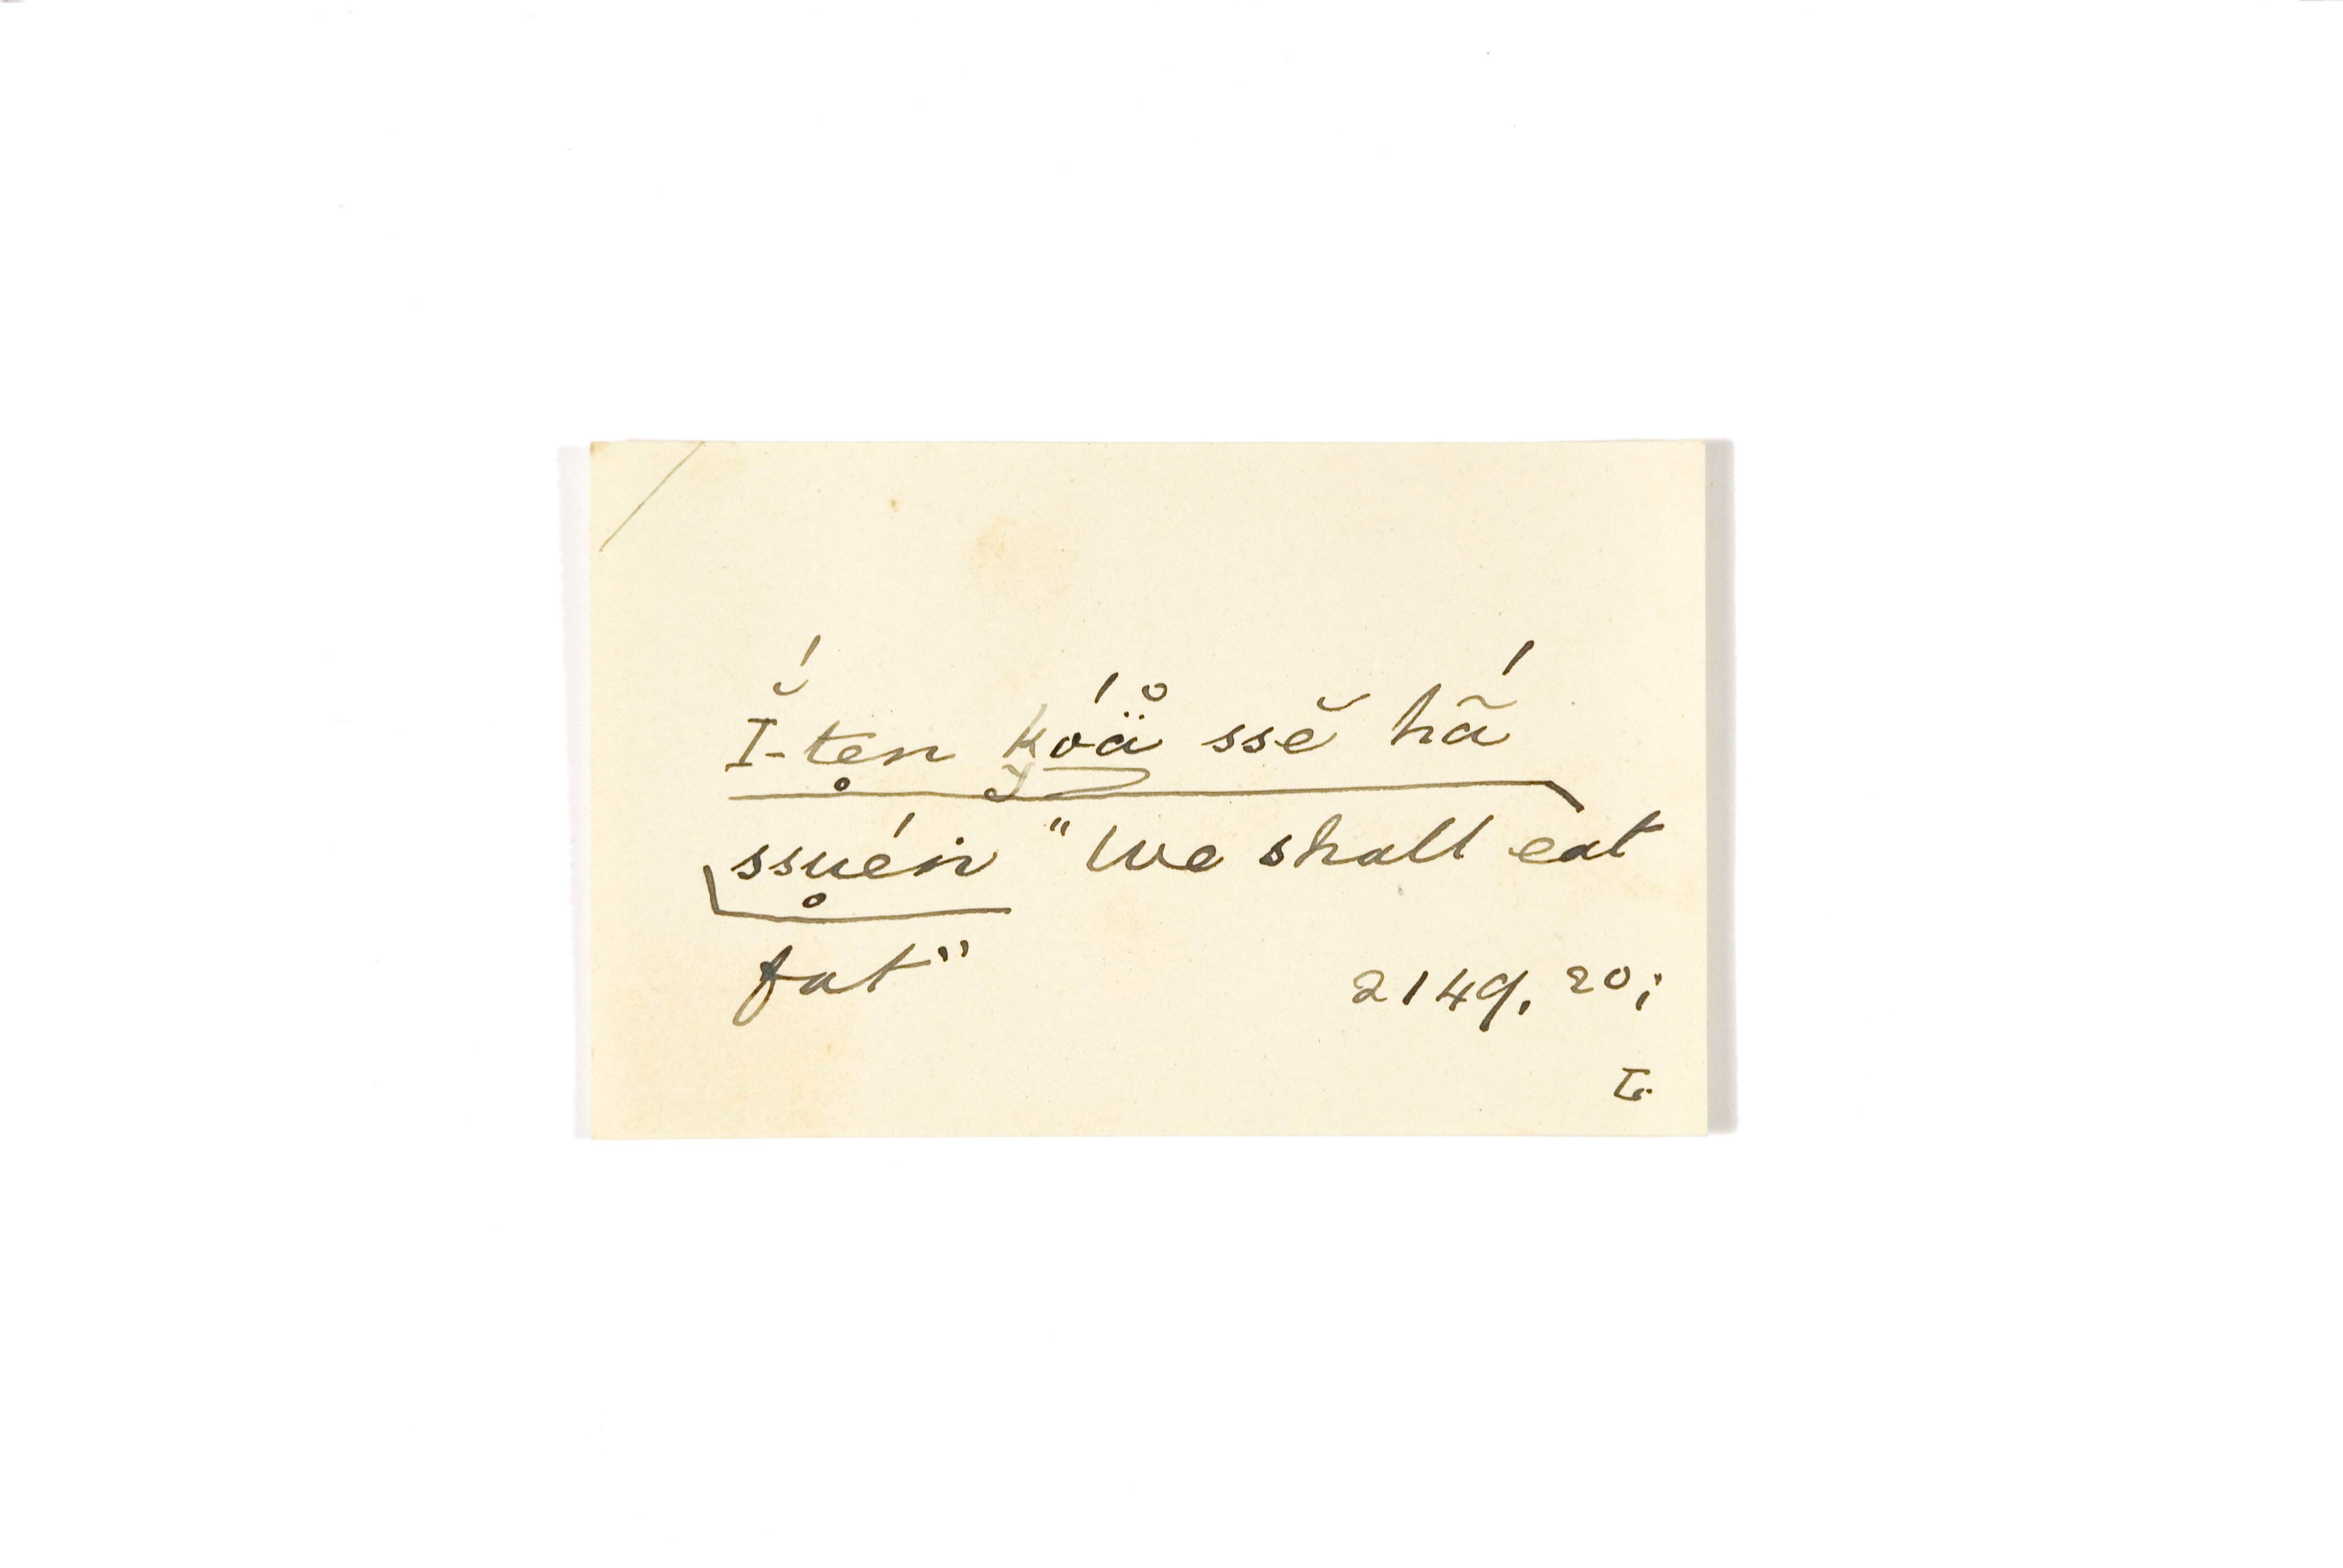 Ĭ́-te̥n k͜óä̊ ssĕ hã́
ssu̥éṅ "We shall eat
fat"
2149, 20;